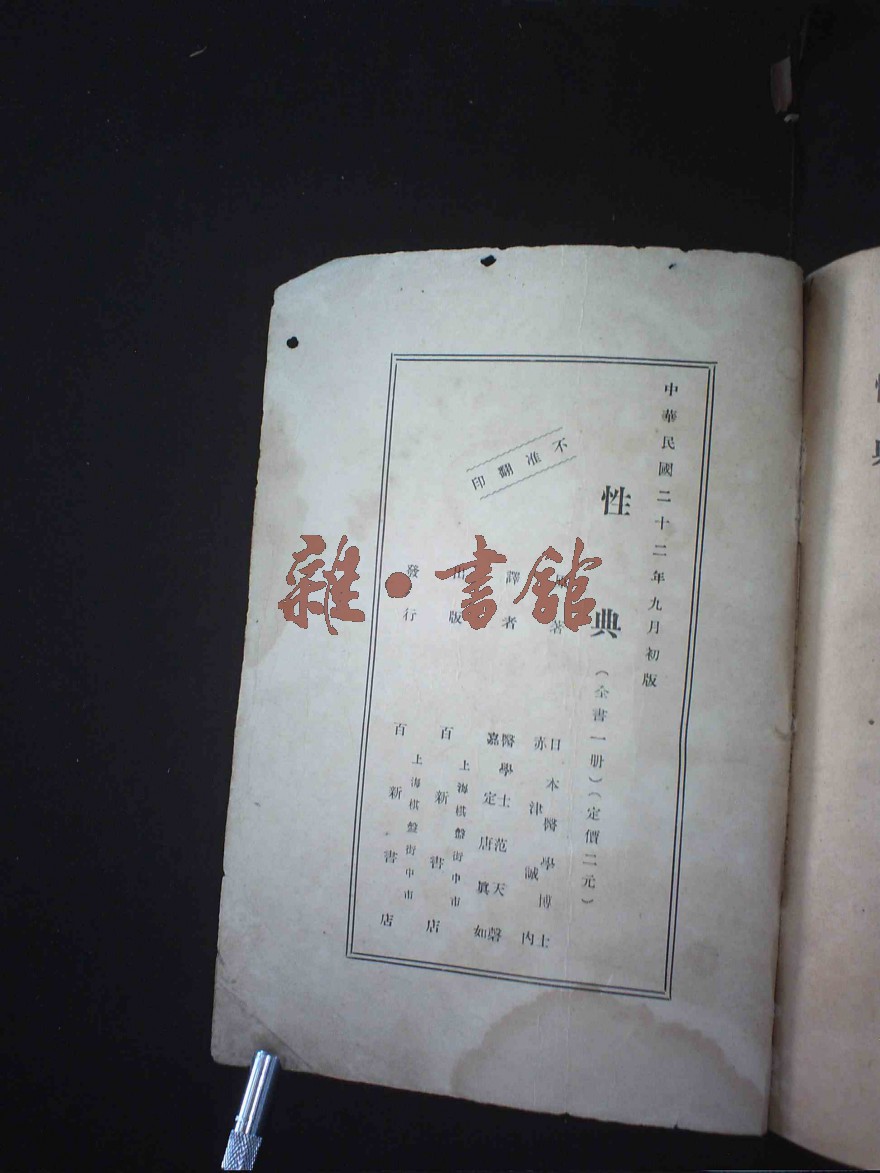 中華民國二十二年九月初版
性典（全書一册）（定價二元）
不准翻印
原著
日本醫學博士
赤津誠內
譯者
醫學士范天磬
嘉定唐眞如
出版
上海棋盤街中市
百新書店
發行
上海棋盤街中市
百新書店
雜·書館
典